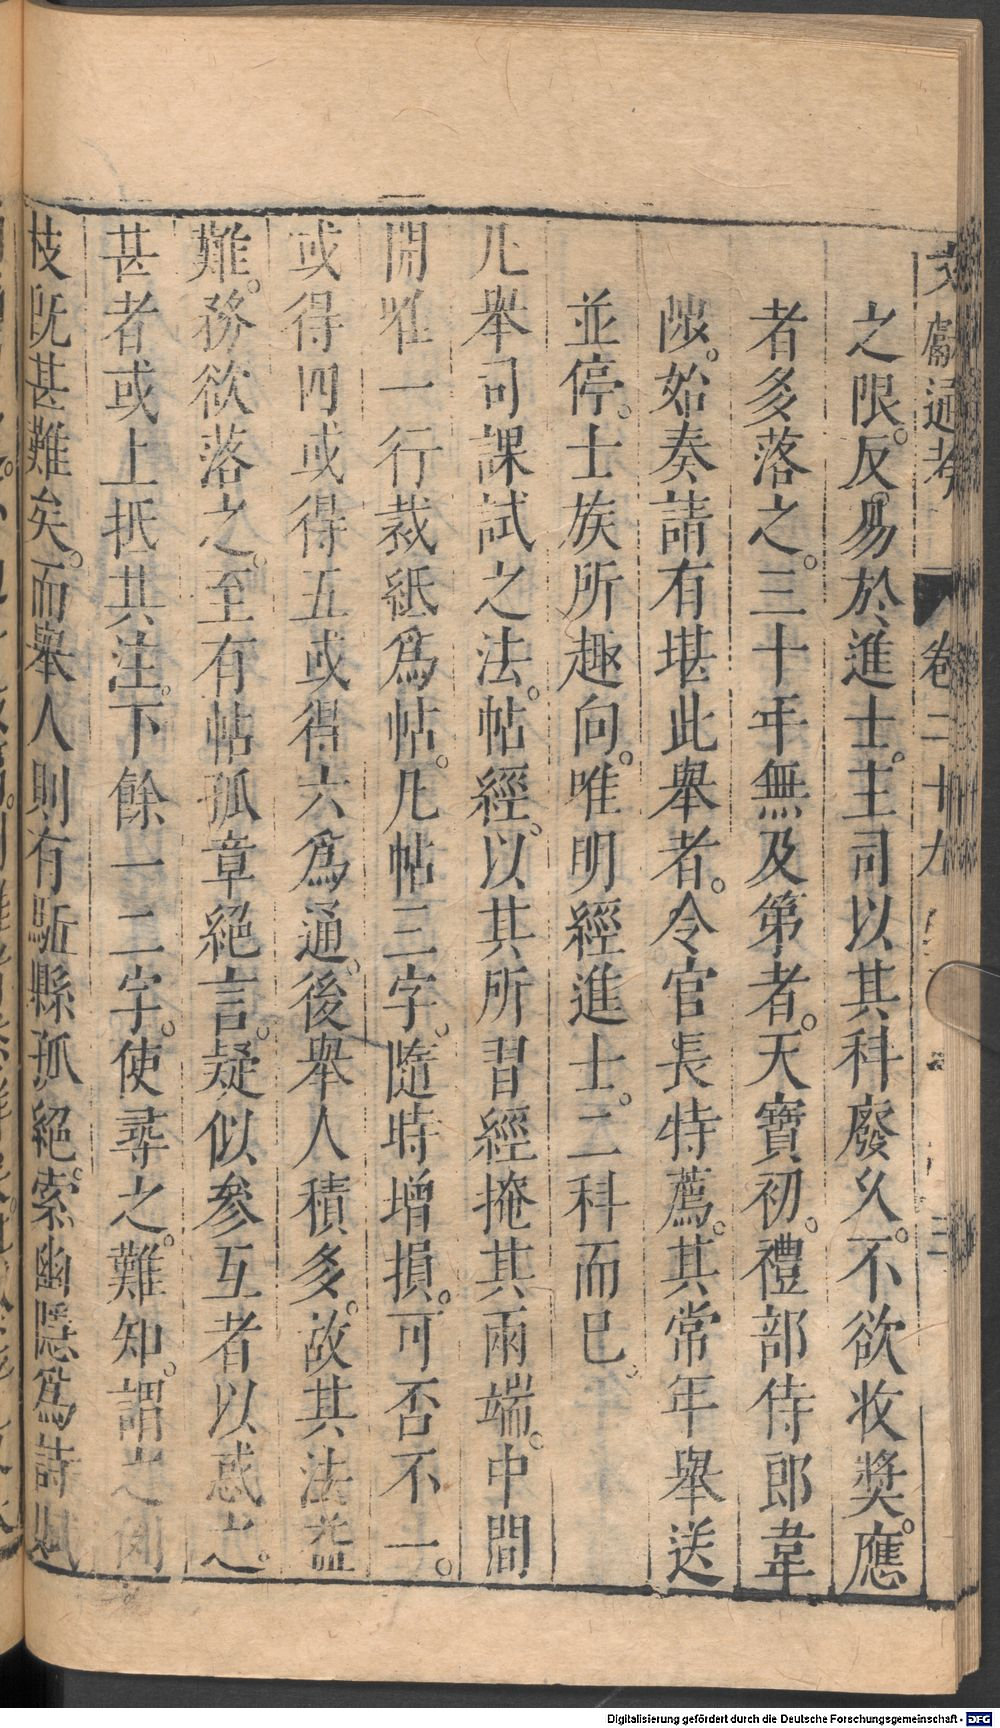 文獻通考 卷二十九 三
之限。反易於進士。主司以其科廢久。不欲收奬。應
者多落之。三十年無及第者。天寶初。禮部侍郎韋
陟。始奏請有堪此舉者。令官長特薦。其常年舉送
並停。士族所趣向。唯明經進士。二科而已。
凡舉司課試之法。帖經。以其所習經掩其兩端。中間
開唯一行裁紙爲帖。凡帖三字。隨時增損。可否不一。
或得四或得五或得六爲通。後舉人積多。故其法益
難。務欲落之。至有帖孤章絕言。疑似參互者以惑之。
甚者或上抵其注。下餘一二字。使尋之。難知。謂之倒
㧞既甚難矣。而舉人則有駈縣孤絕。索幽隱爲詩賦
Digitalisierung gefördert durch die Deutsche Forschungsgemeinschaft - DFG